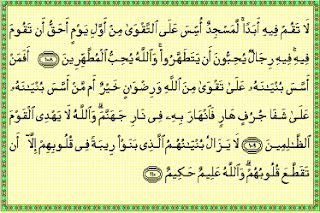 لَا تَقُمْ فِيهِ أَبَدًا ۚ لَّمَسْجِدٌ أُسِّسَ عَلَى ٱلتَّقْوَىٰ مِنْ أَوَّلِ يَوْمٍ أَحَقُّ أَن تَقُومَ
فِيهِ ۚ فِيهِ رِجَالٌ يُحِبُّونَ أَن يَتَطَهَّرُوا۟ ۚ وَٱللَّهُ يُحِبُّ ٱلْمُطَّهِّرِينَ ١٠٨ أَفَمَنْ
أَسَّسَ بُنْيَـٰنَهُۥ عَلَىٰ تَقْوَىٰ مِنَ ٱللَّهِ وَرِضْوَٰنٍ خَيْرٌ أَم مَّنْ أَسَّسَ بُنْيَـٰنَهُۥ
عَلَىٰ شَفَا جُرُفٍ هَارٍ فَٱنْهَارَ بِهِۦ فِى نَارِ جَهَنَّمَ ۗ وَٱللَّهُ لَا يَهْدِى ٱلْقَوْمَ
ٱلظَّـٰلِمِينَ ١٠٩ لَا يَزَالُ بُنْيَـٰنُهُمُ ٱلَّذِى بَنَوْا۟ رِيبَةً فِى قُلُوبِهِمْ إِلَّآ أَن
تَقَطَّعَ قُلُوبُهُمْ ۗ وَٱللَّهُ عَلِيمٌ حَكِيمٌ ١١٠